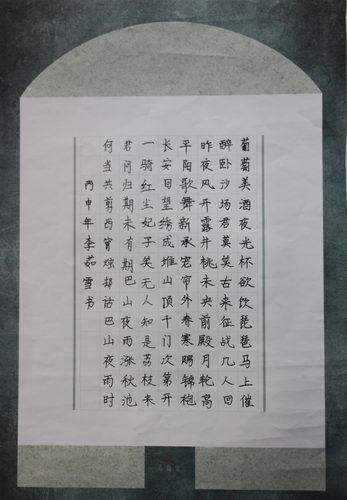 葡萄美酒夜光杯欲饮琵琶马上催
醉卧沙场君莫笑古来征战几人回
昨夜风开露井桃未央前殿月轮高
平阳歌舞新承宠帘外春寒赐锦袍
长安回望绣成堆山顶千门次第开
一骑红尘妃子笑无人知是荔枝来
君问归期未有期巴山夜雨涨秋池
何当共剪西窗烛却话巴山夜雨时
丙申年李茹雪书